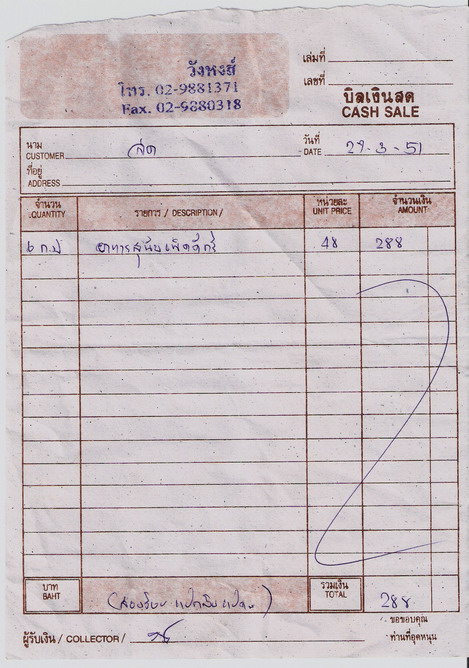 วังหงส์
โทร. 02-9881371
Fax. 02-9880318
เล่มที่
เลขที่
บิลเงินสด
CASH SALE
นาม
CUSTOMER สด
วันที่
DATE 29-3-51
ที่อยู่
ADDRESS
จำนวน
QUANTITY
รายการ / DESCRIPTION /
หน่วยละ
UNIT PRICE
จำนวนเงิน
AMOUNT
6 ก.ป อาหารสุนัขเพ็ดดีกรี 48 288
บาท
BAHT
(สองร้อยแปดสิบแปด)
รวมเงิน
TOTAL 288
ผู้รับเงิน / COLLECTOR /
ขอขอบคุณ
ท่านที่อุดหนุน